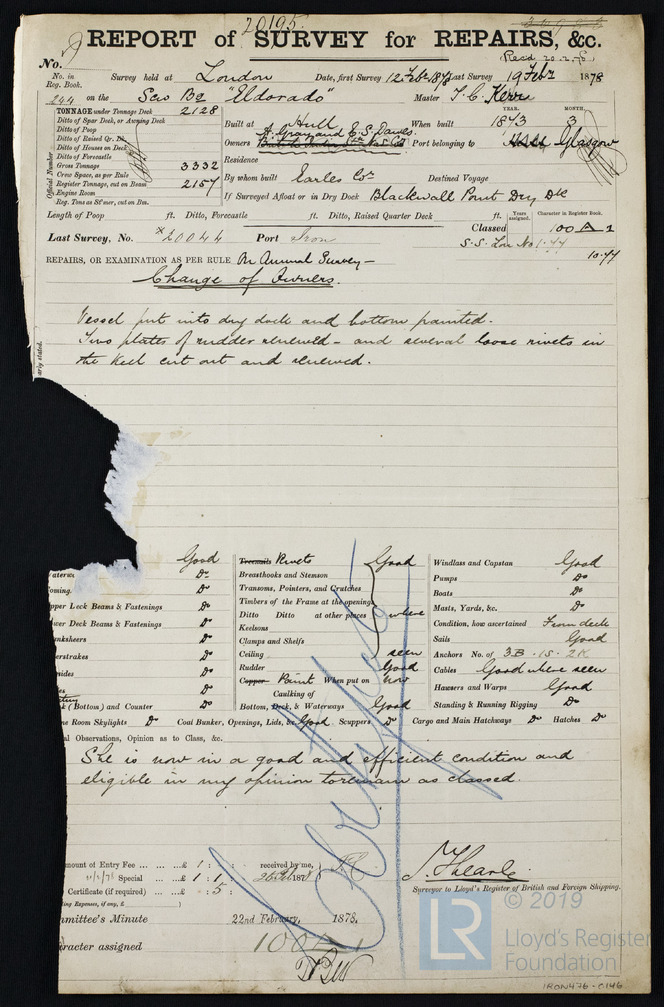 20195
REPORT of SURVEY for REPAIRS, &c.
No.
Recd 20.2.78
No. in Reg. Book. Survey held at London Date, first Survey 12 Feb 1878 Last Survey 19 Feb 1878
244 on the Scw Bq "Eldorado" Master T. C. Kerr
TONNAGE under Tonnage Deck 2128
Ditto of Spar Deck, or Awning Deck
Ditto of Poop
Ditto of Raised Qr. Dk
Ditto of Houses on Deck
Ditto of Forecastle
Gross Tonnage 3332
Crew Space, as per Rule
Register Tonnage, cut on Beam 2157
Engine Room
Reg. Tons as St'mer, cut on Bm.
Official Number
YEAR. MONTH.
Built at Hull When built 1873 3
A. Gray and E. S. Dawes.
Owners Port belonging to Glasgow
Residence
By whom built Earles Co. Destined Voyage
If Surveyed Afloat or in Dry Dock Blackwall Point Dry Dk
Length of Poop ft. Ditto, Forecastle ft. Ditto, Raised Quarter Deck ft. Years assigned. Character in Register Book.
Classed 100 A 1
Last Survey, No. 20044 Port Iron
S.S. Lon No 1.77
10.77
REPAIRS, OR EXAMINATION AS PER RULE On Annual Survey -
Change of Owners.
Vessel put into dry dock and bottom painted.
Two plates of rudder renewed - and several loose rivets in
the keel cut out and renewed.
arly stated.
Good
aterwa Do
oming. Do
pper Deck Beams & Fastenings Do
wer Deck Beams & Fastenings Do
anksheers Do
erstrakes Do
sides Do
es Do
k (Bottom) and Counter Do
Treenails Rivets Good
Breasthooks and Stemson
Transoms, Pointers, and Crutches
Timbers of the Frame at the openings
Ditto Ditto at other places where
Keelsons
Clamps and Shelfs
Ceiling seen
Rudder Good
Copper Paint When put on now
Caulking of
Bottom, Deck, & Waterways Good
Windlass and Capstan Good
Pumps Do
Boats Do
Masts, Yards, &c. Do
Condition, how ascertained From deck
Sails Good
Anchors No. of 3B.1S.2K
Cables Good where seen
Hawsers and Warps Good
Standing & Running Rigging Do
ne Room Skylights Do Coal Bunker, Openings, Lids, &c. Good Scuppers Do Cargo and Main Hatchways Do Hatches Do
al Observations, Opinion as to Class, &c.
She is now in a good and efficient condition and
eligible in my opinion to remain as classed.
mount of Entry Fee ... ... ... £ 1 : : received by me,
Special ... £ 1 : 1 : 187
Certificate (if required) ... £ : 5 :
ling Expenses, if any, £ )
Surveyor to Lloyd's Register of British and Foreign Shipping.
mmittee's Minute 22nd February, 1878.
aracter assigned 100A1
© 2019
LR
Lloyd's Register
Foundation
IRON476-0146